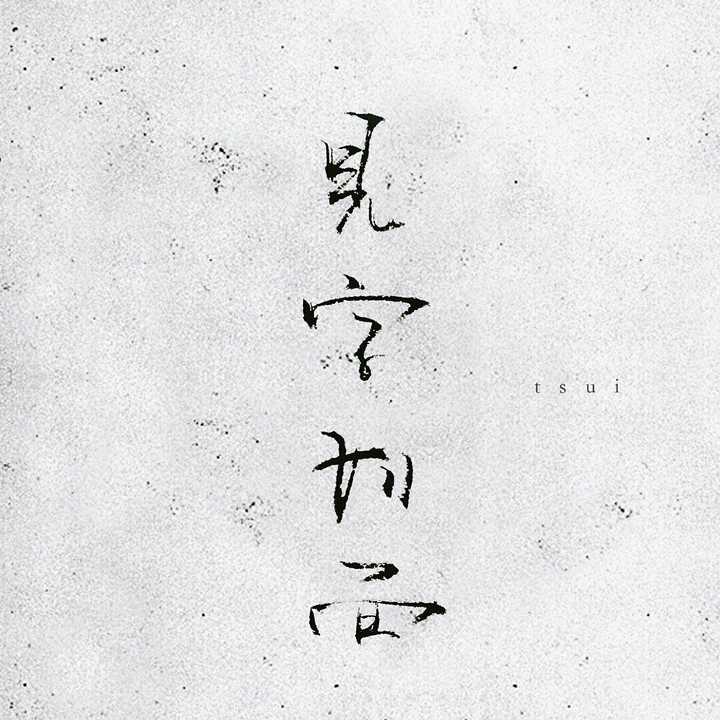 見字如面
tsui